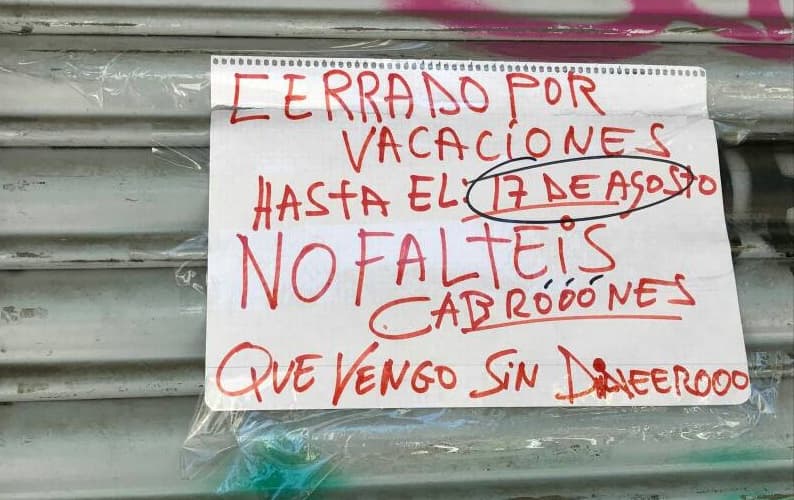 CERRADO POR
VACACIONES
HASTA EL: 17 DE AGOSTO
NO FALTEiS
CABRÓÓÓNES
QUE VENGO SiN DiNEEROOO